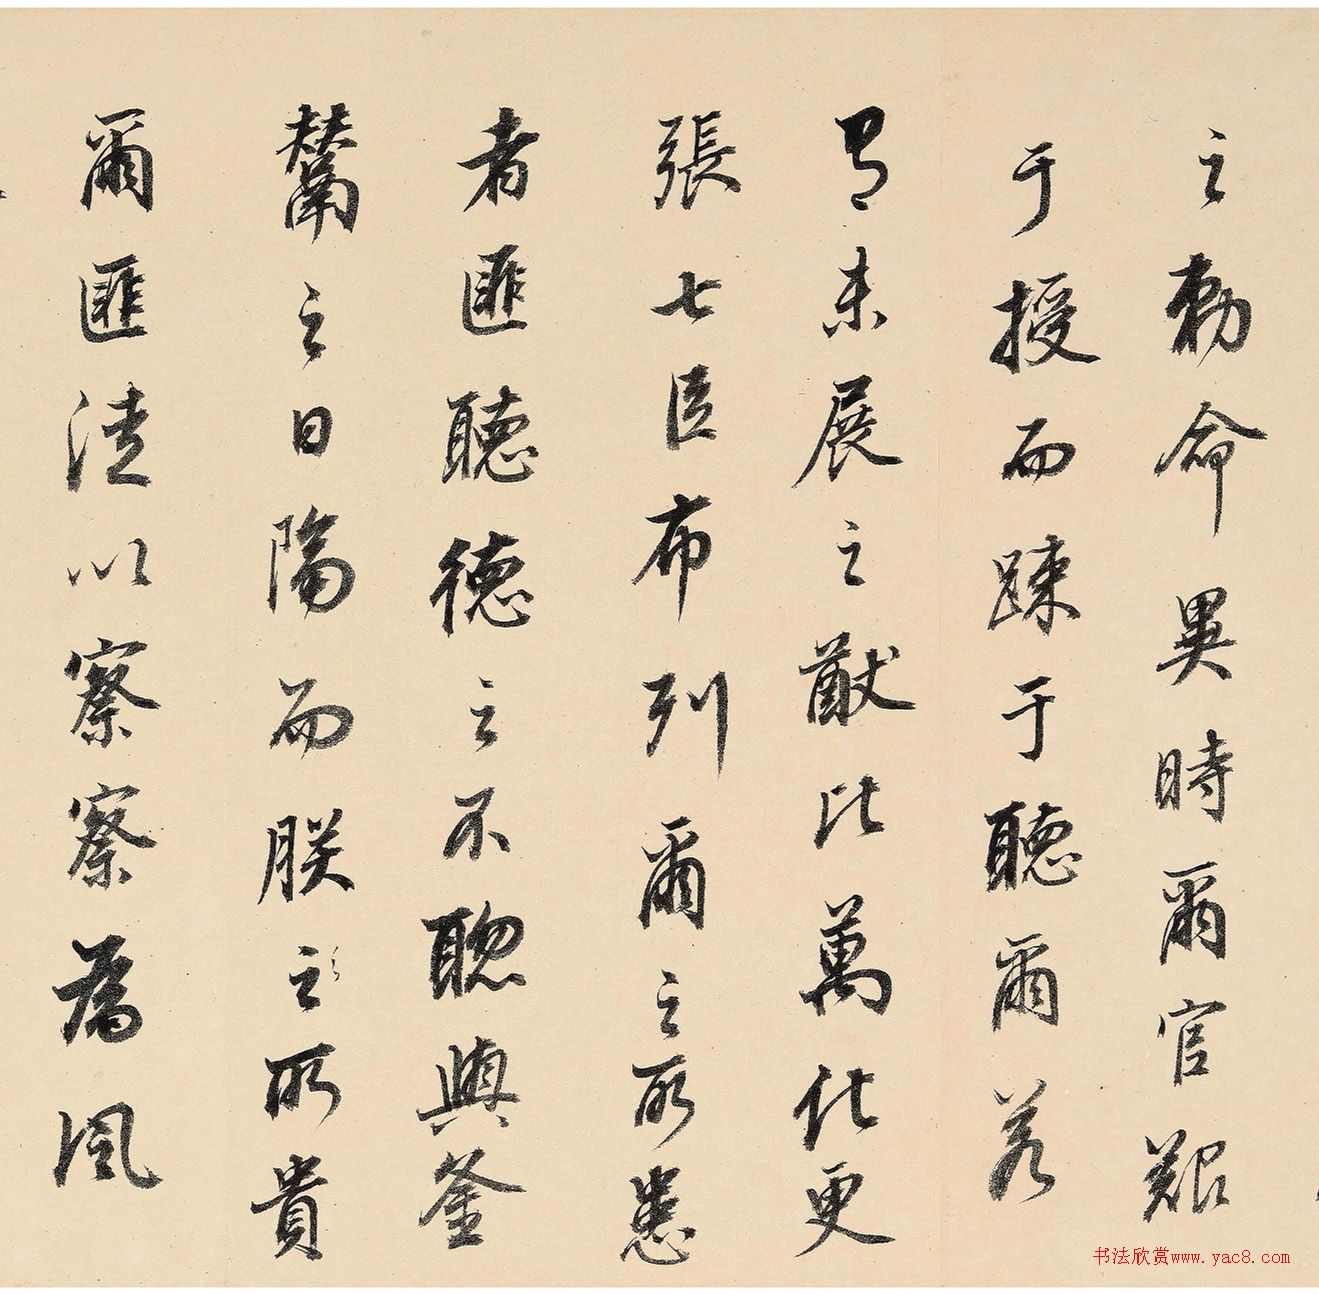 之勅命異時爾官艱
于授而踈于聽爾若
有未展之猷比萬化更
張七臣布列爾之所患
者匪聽德之不聰與釜
鬵之日隔而朕之所貴
爾匪法以察察為風
书法欣赏www.yac8.com